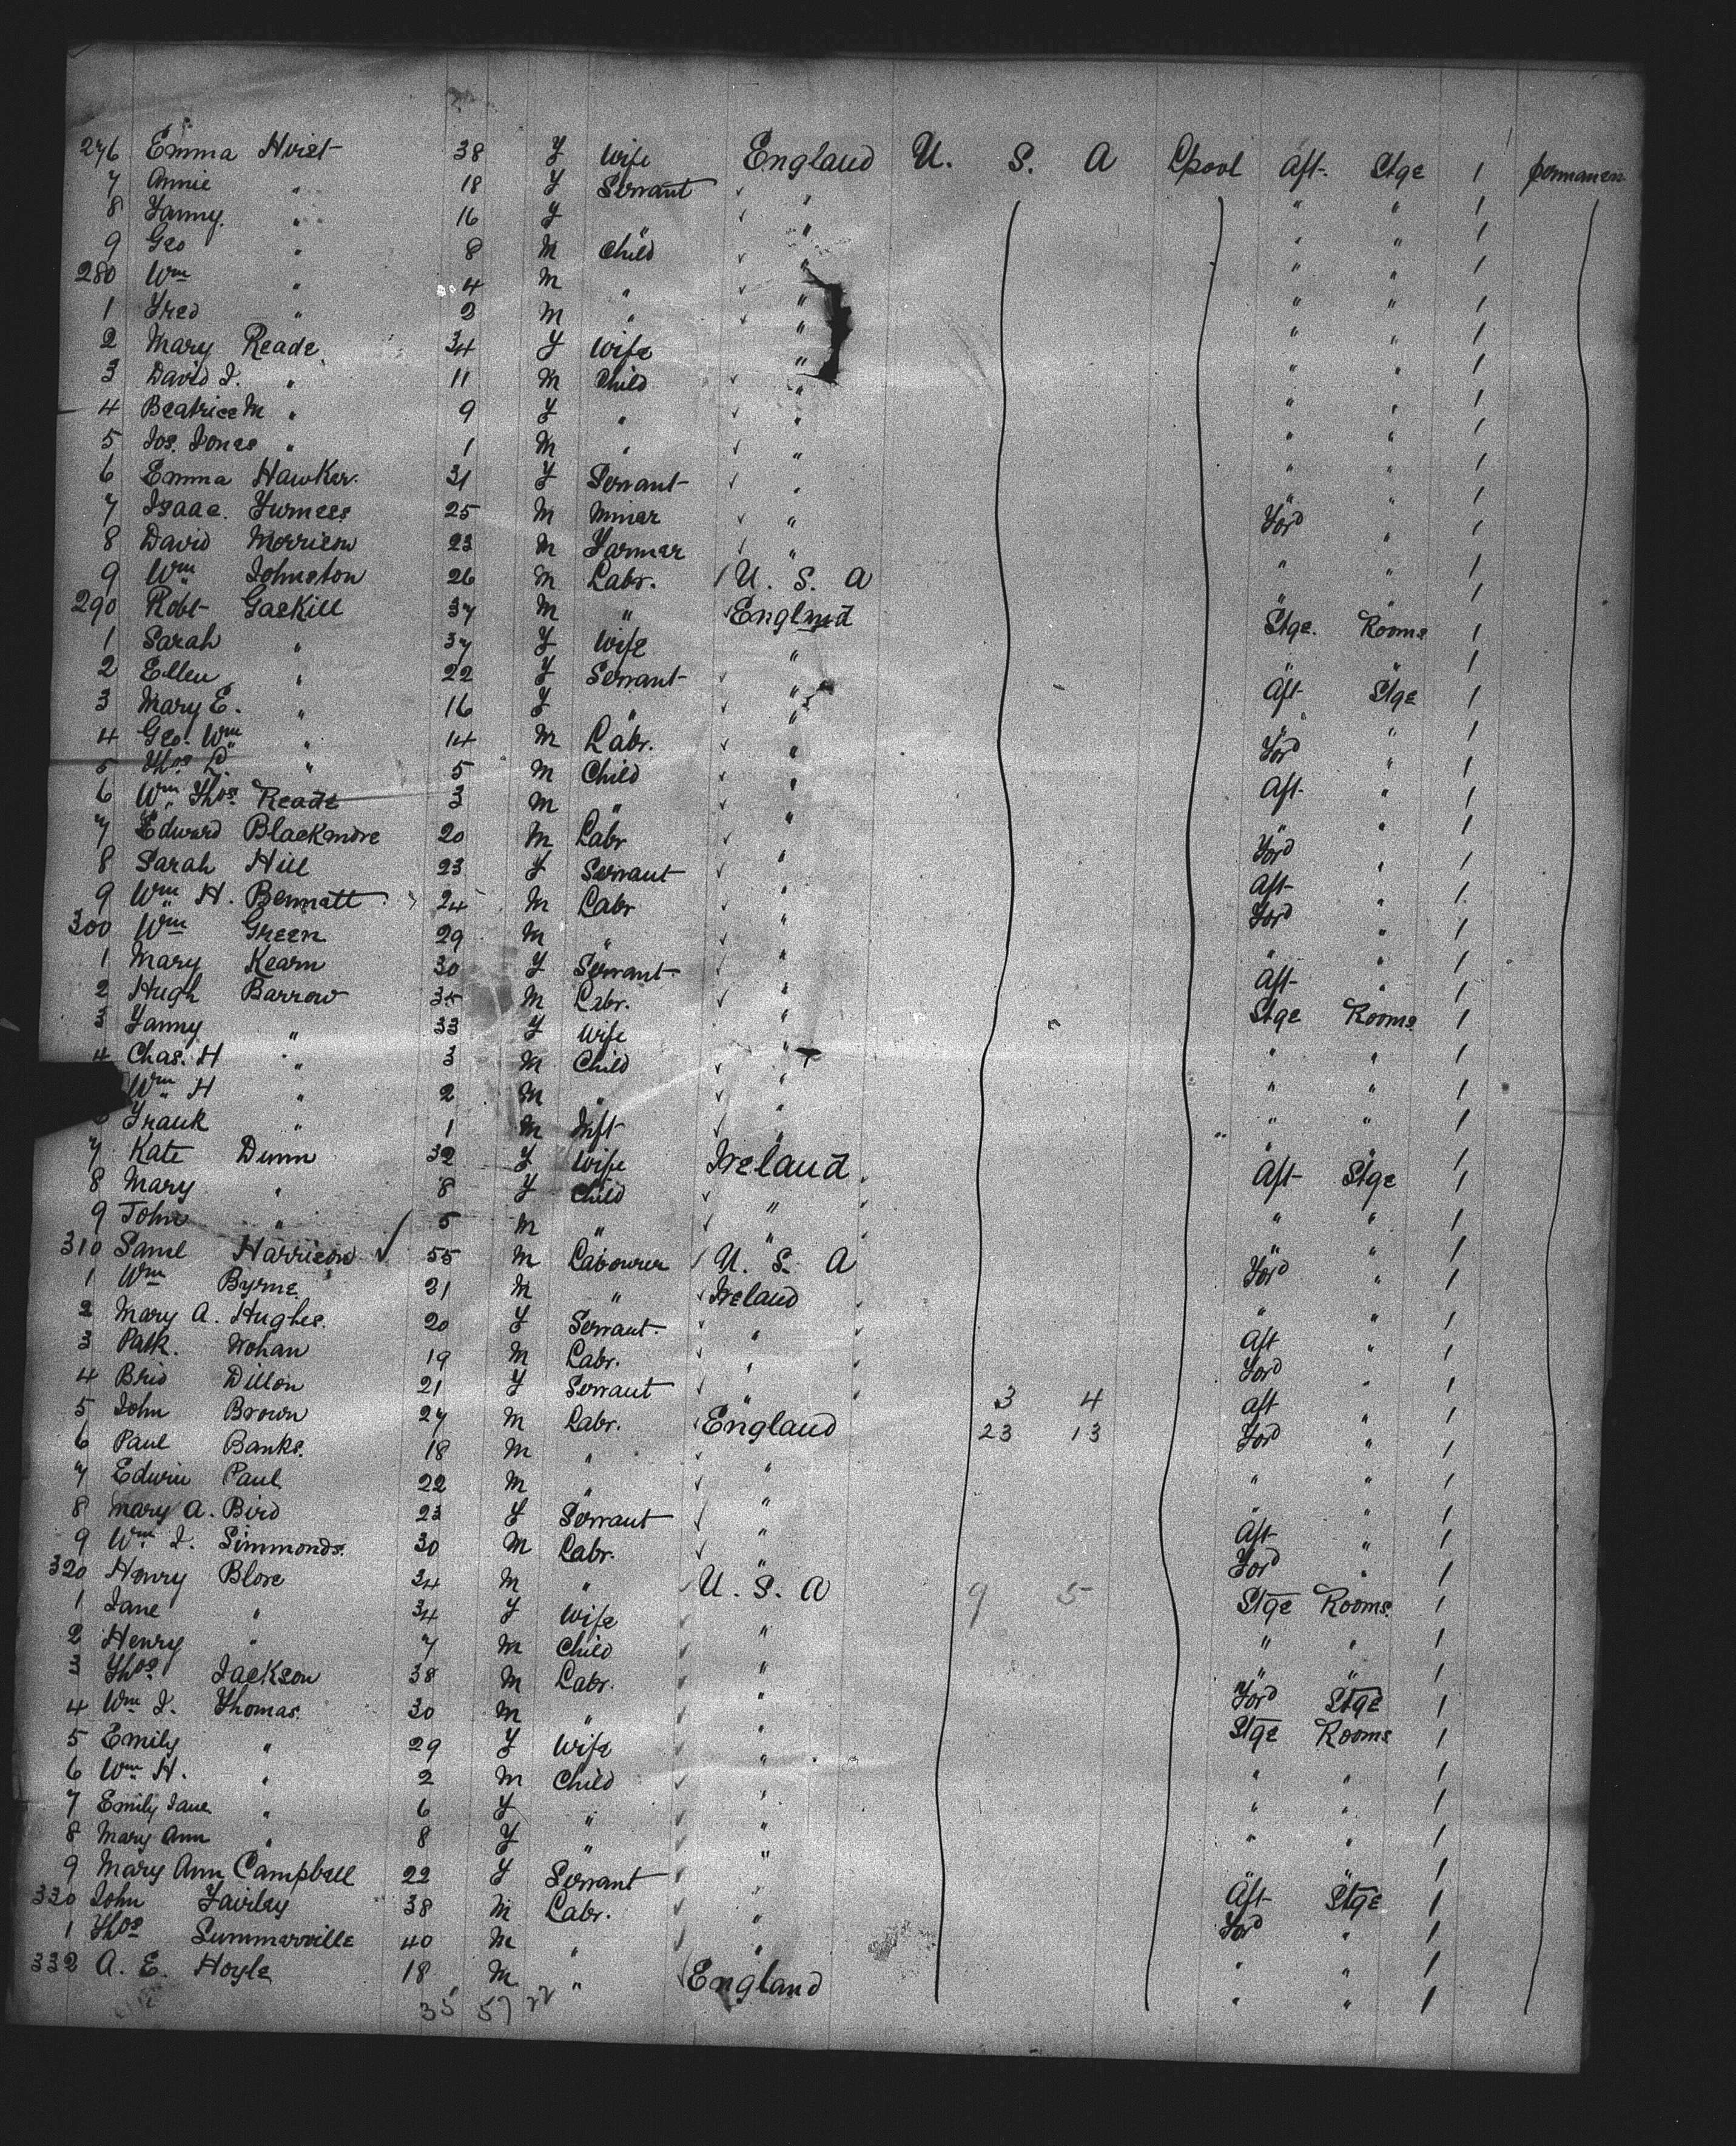 276 Emma Hirst 38 F Wife England U. S. A Lpool Aft. Stge 1 permanen
7 Annie " 18 F Servant " " " 1
8 Fanny. " 16 F " " " " 1
9 Geo " 8 M Child " " " 1
280 Wm " 4 M " " " " 1
1 Fred " 2 M " " " " 1
2 Mary Reade. 34 F Wife " " " 1
3 David J. " 11 M Child " " " 1
4 Beatrice M " 9 F " " " " 1
5 Jos. Jones " 1 M " " " " 1
6 Emma Hawker. 31 F Servant " " " 1
7 Isaac. Furness 25 M Miner " Ford " 1
8 David Morrison 23 M Farmer " " " 1
9 Wm Johnston 26 M Labr. U. S. A " " 1
290 Robt Gaskill 37 M " England Stge. Rooms 1
1 Sarah " 37 F Wife " " " 1
2 Ellen " 22 F Servant " Aft Stge 1
3 Mary E. " 16 F " " " " 1
4 Geo. Wm " 14 M Labr. " Ford " 1
5 Thos. L. " 5 M Child " Aft. " 1
6 Wm Thos. Reade 3 M " " " " 1
7 Edward Blackmore 20 M Labr " Ford " 1
8 Sarah Hill 23 F Servant " Aft " 1
9 Wm H. Bennett 24 M Labr " Ford " 1
300 Wm Green 29 M " " " " 1
1 Mary Kearn 30 F Servant " Aft " 1
2 Hugh Barrow 35 M Labr. " Stge Rooms 1
3 Fanny " 33 F Wife " " " 1
4 Chas. H " 3 M Child " " " 1
Wm H " 2 M " " " " 1
Frank " 1 M Inft " " " 1
7 Kate Dunn 32 F Wife Ireland Aft Stge 1
8 Mary " 8 F Child " " " 1
9 John " 5 M " " " " 1
310 Saml Harrison 55 M Labourer U. S. A Ford " 1
1 Wm Byrne. 21 M " Ireland " " 1
2 Mary A. Hughes. 20 F Servant. " Aft " 1
3 Patk. Wohan 19 M Labr. " Ford " 1
4 Brid Dillon 21 F Servant " 3 4 Aft " 1
5 John Brown 27 M Labr. England 23 13 Ford " 1
6 Paul Banks. 18 M " " " " 1
7 Edwin Paul 22 M " " " " 1
8 Mary A. Bird 23 F Servant " Aft " 1
9 Wm. J. Simmonds. 30 M Labr. " Ford " 1
320 Henry Blore 34 M " U. S. A 9 5 Stge Rooms 1
1 Jane " 34 F Wife " " " 1
2 Henry " 7 M Child " " " 1
3 Thos Jackson 38 M Labr. " Ford Stge 1
4 Wm J. Thomas. 30 M " " Stge Rooms 1
5 Emily " 29 F Wife " " " 1
6 Wm H. " 2 M Child " " " 1
7 Emily Jane " 6 F " " " " 1
8 Mary Ann " 8 F " " " " 1
9 Mary Ann Campbell 22 F Servant " Aft Stge 1
330 John Fairley 38 M Labr. " Ford " 1
1 Thos Summerville 40 M " " " " 1
332 A. E. Hoyle 18 M " England " " 1
35 57 22